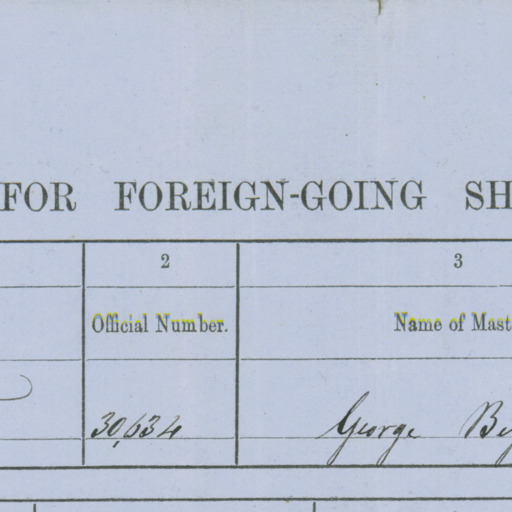 FOR FOREIGN-GOING SH
2 3
Official Number. Name of Mast
30,634 George